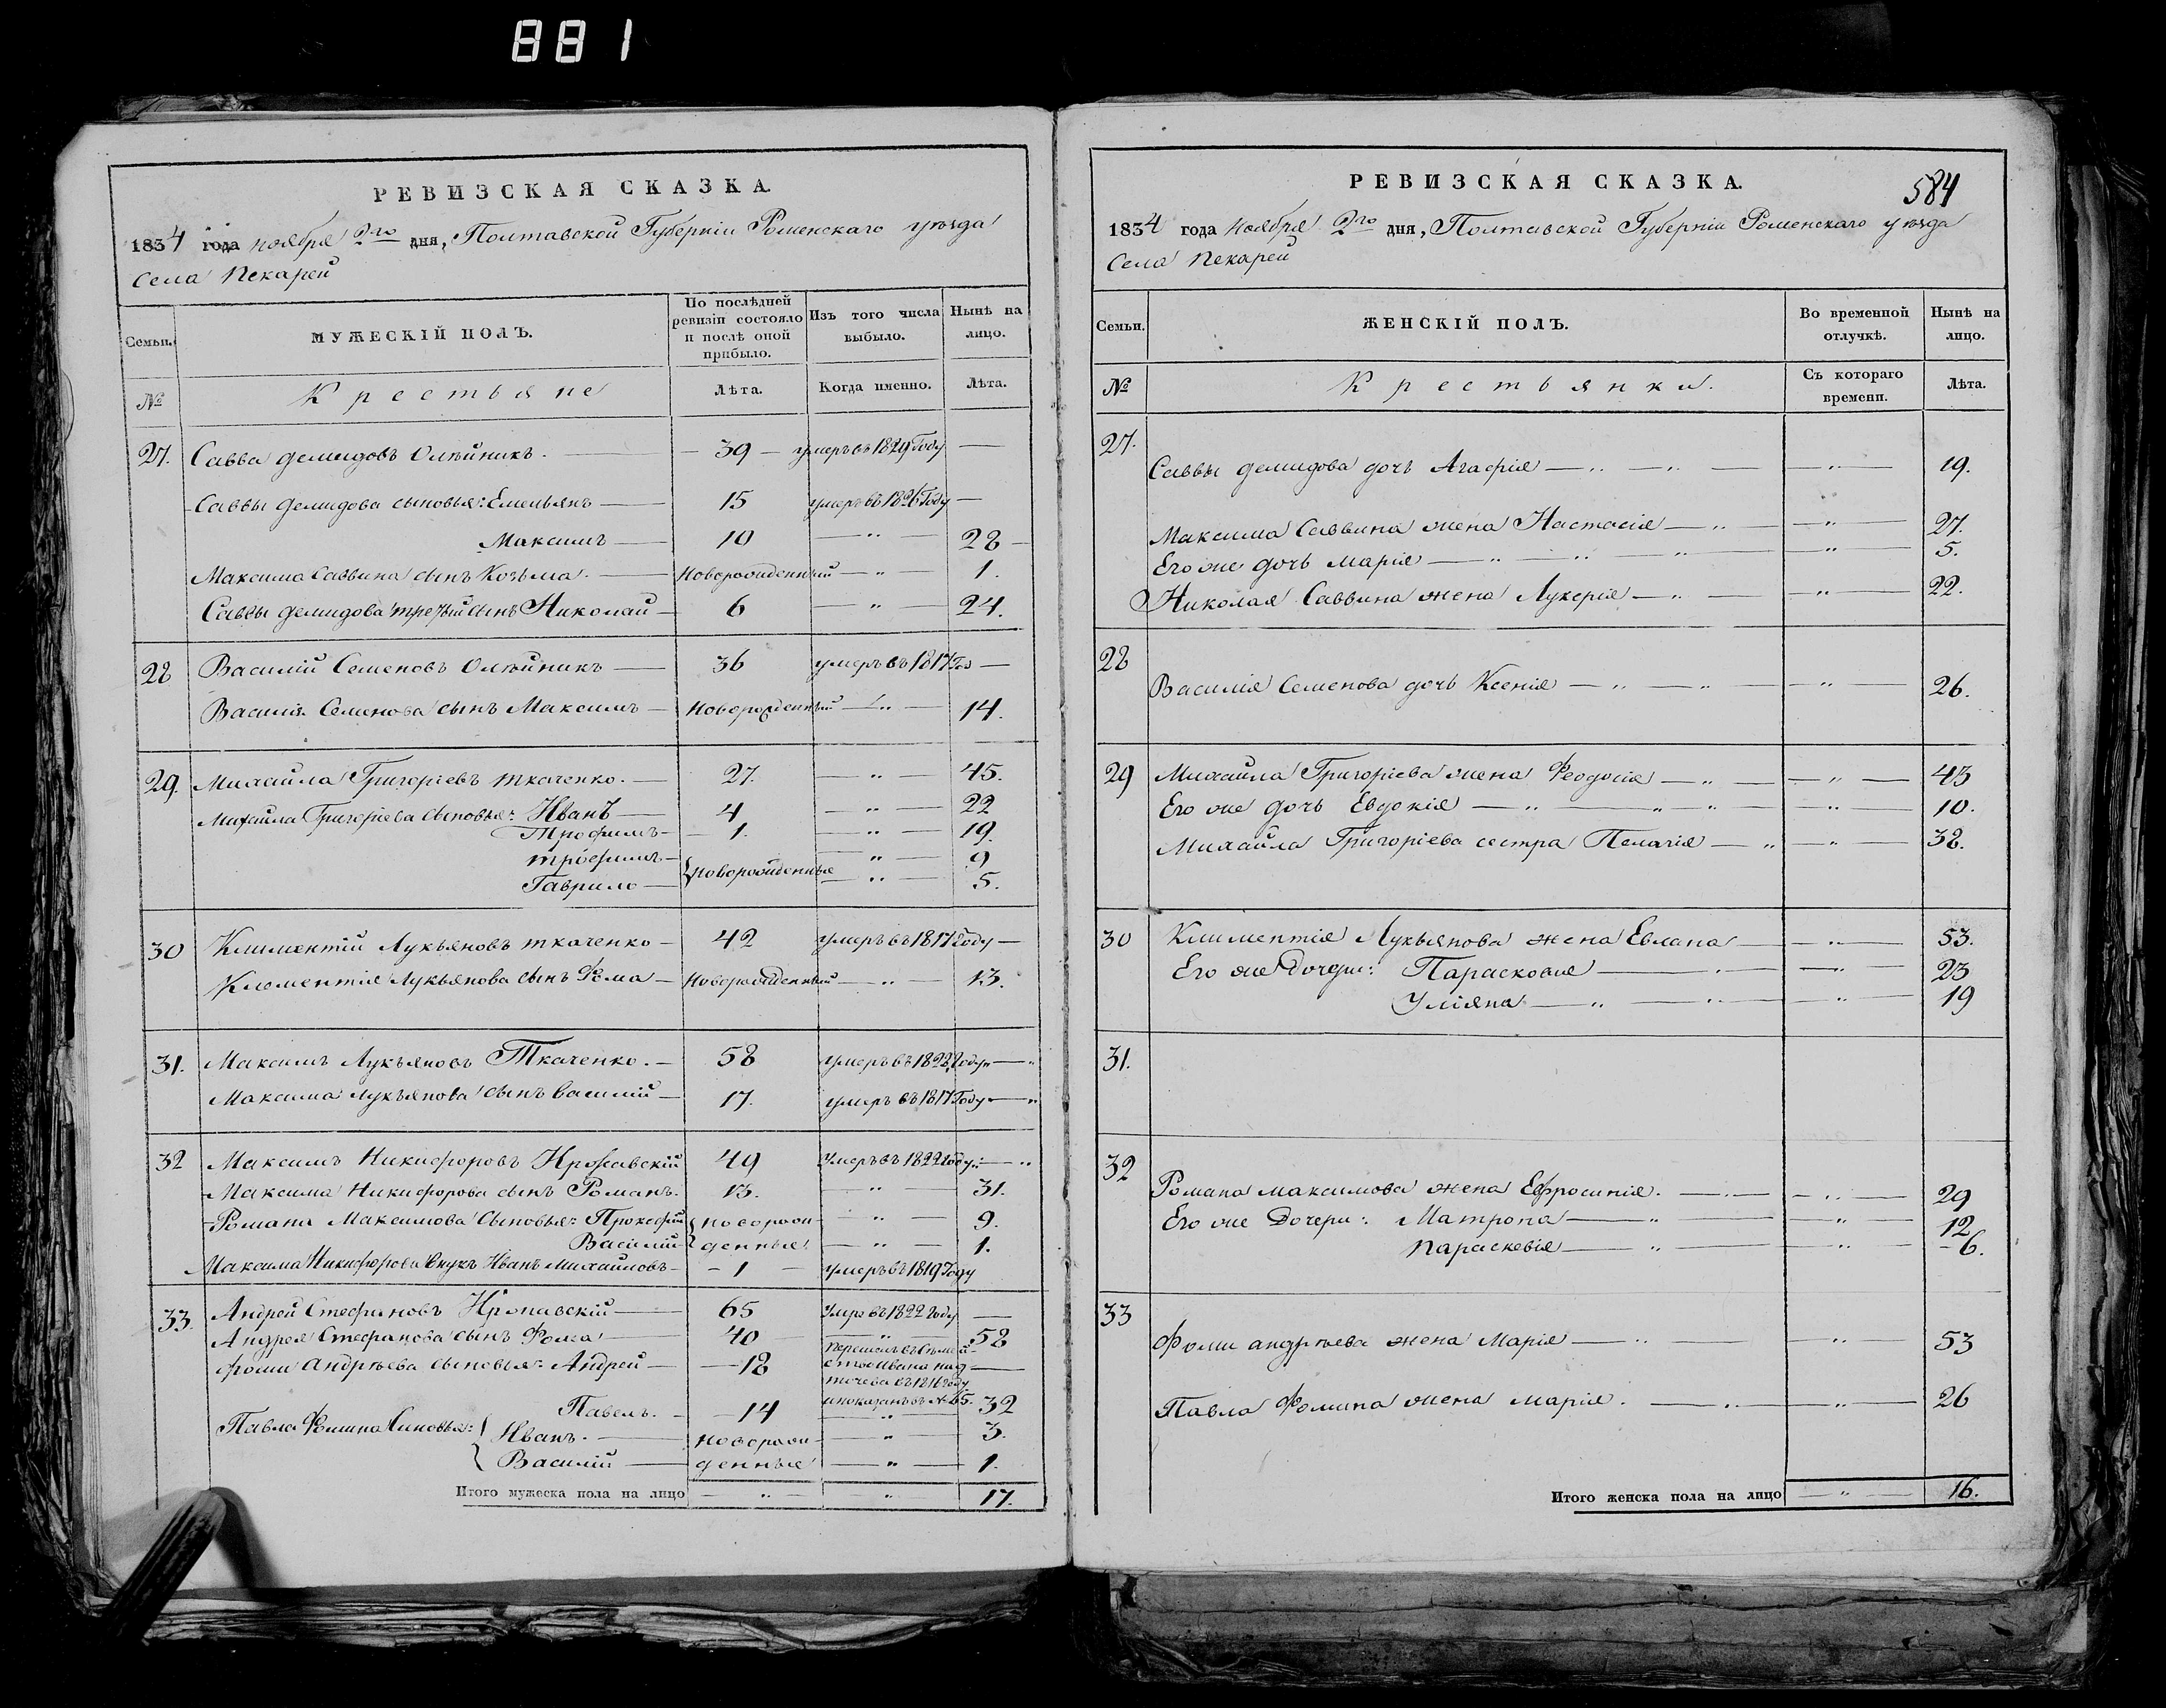 881
РЕВИЗСКАЯ СКАЗКА.
1834 года ноября 2го дня, Полтавской Губерніи Роменскаго уѣзда
Села Пекарей
Семьи.
МУЖЕСКІЙ ПОЛЪ.
По послѣдней ревизіи состояло и послѣ оной прибыло.
Изъ того числа выбыло.
Нынѣ на лицо.
№
Крестьяне
Лѣта.
Когда именно.
Лѣта.
27. Савва Демидовъ Олѣйникъ. — 39 — умеръ въ 1829 Году —
Саввы Демидова сыновья: Емельянъ — 15 умеръ въ 1826 Году —
Максимъ — 10 — „ — 28 —
Максима Саввина сынъ Козьма. — Новорожденный — „ — 1.
Саввы Демидова третій сынъ Николай — 6 — „ — 24.
28 Василій Семеновъ Олѣйникъ — 36 умеръ въ 1817 Год —
Василія Семенова сынъ Максимъ — Новорожденный — „ — 14.
29. Михайла Григоріевъ Ткаченко. — 27. — „ — 45.
Михайла Григоріева сыновья: Иванъ — 4 — „ — 22
Трофимъ — 1. — „ — 19.
Трофимъ — Новорожденные — „ — 9
Гаврило — — „ — 5.
30 Климентій Лукьяновъ Ткаченко — 42 умеръ въ 1817 Году —
Климентія Лукьянова сынъ Фома — Новорожденный — „ — 13.
31. Максимъ Лукьяновъ Ткаченко. — 58 умеръ въ 1822 Году — „
Максима Лукьянова сынъ Василій — 17. умеръ въ 1817 Году — „
32 Максимъ Никифоровъ 49 Умеръ въ 1822 Году: — „
Максима Никифорова сынъ Романъ. 13. — „ — 31.
Романа Максимова Сыновья: Прокофій { новорож- — „ — 9.
Василій денные — „ — 1.
Максима Никифорова Внукъ Иванъ Михайловъ — 1 — умеръ въ 1819 Году
33. Андрей Стефановъ — 65 Умре въ 1822 Году —
Андрея Стефанова сынъ Фома — 40 — „ — 58
Фомы Андрѣева сыновья: Андрей — 18 —
въ 1816 Году
и показанъ въ № 65.
Павелъ. — 14 „ 32
Павла Фомина Сыновья: { Иванъ. — Новорож- — „ — 3.
Василій — денные — „ — 1.
Итого мужеска пола на лицо — „ — „ 17.
РЕВИЗСКАЯ СКАЗКА.
584
1834 года Ноября 2го дня, Полтавской Губерніи Роменскаго уѣзда
Села Пекарей
Семьи.
ЖЕНСКІЙ ПОЛЪ.
Во временной отлучкѣ.
Нынѣ на лицо.
№
Крестьянки.
Съ котораго времени.
Лѣта.
27.
Саввы Демидова дочь Агафія — „ — „ — — „ — 19.
Максима Саввина жена Настасія — „ — — „ — 27.
Его же дочь Марія — „ — „ — „ — — „ — 5.
Николая Саввина жена Лукерія — „ — — „ — 22.
28
Василія Семенова дочь Ксенія — „ — „ — — „ — 26.
29 Михайла Григоріева жена Феодосія — „ — — „ — 43
Его же дочь Евдокія — „ — „ — „ — — „ — 10.
Михайла Григоріева сестра Пелагія — „ — „ — 38.
30 Климентія Лукьянова жена — — „ — 53.
Его же Дочери: Парасковія — „ — — „ — 23
Уліяна — „ — „ — — „ — 19
31.
32
Романа Максимова жена Ефросинія. — „ — — „ — 29
Его же Дочери: Матрона — „ — — „ — 12
Параскевія — „ — — „ — 6.
33
Фомы Андрѣева жена Марія — „ — — „ — 53
Павла Фомина жена Марія. — „ — — „ — 26
Итого женска пола на лицо — „ — 16.